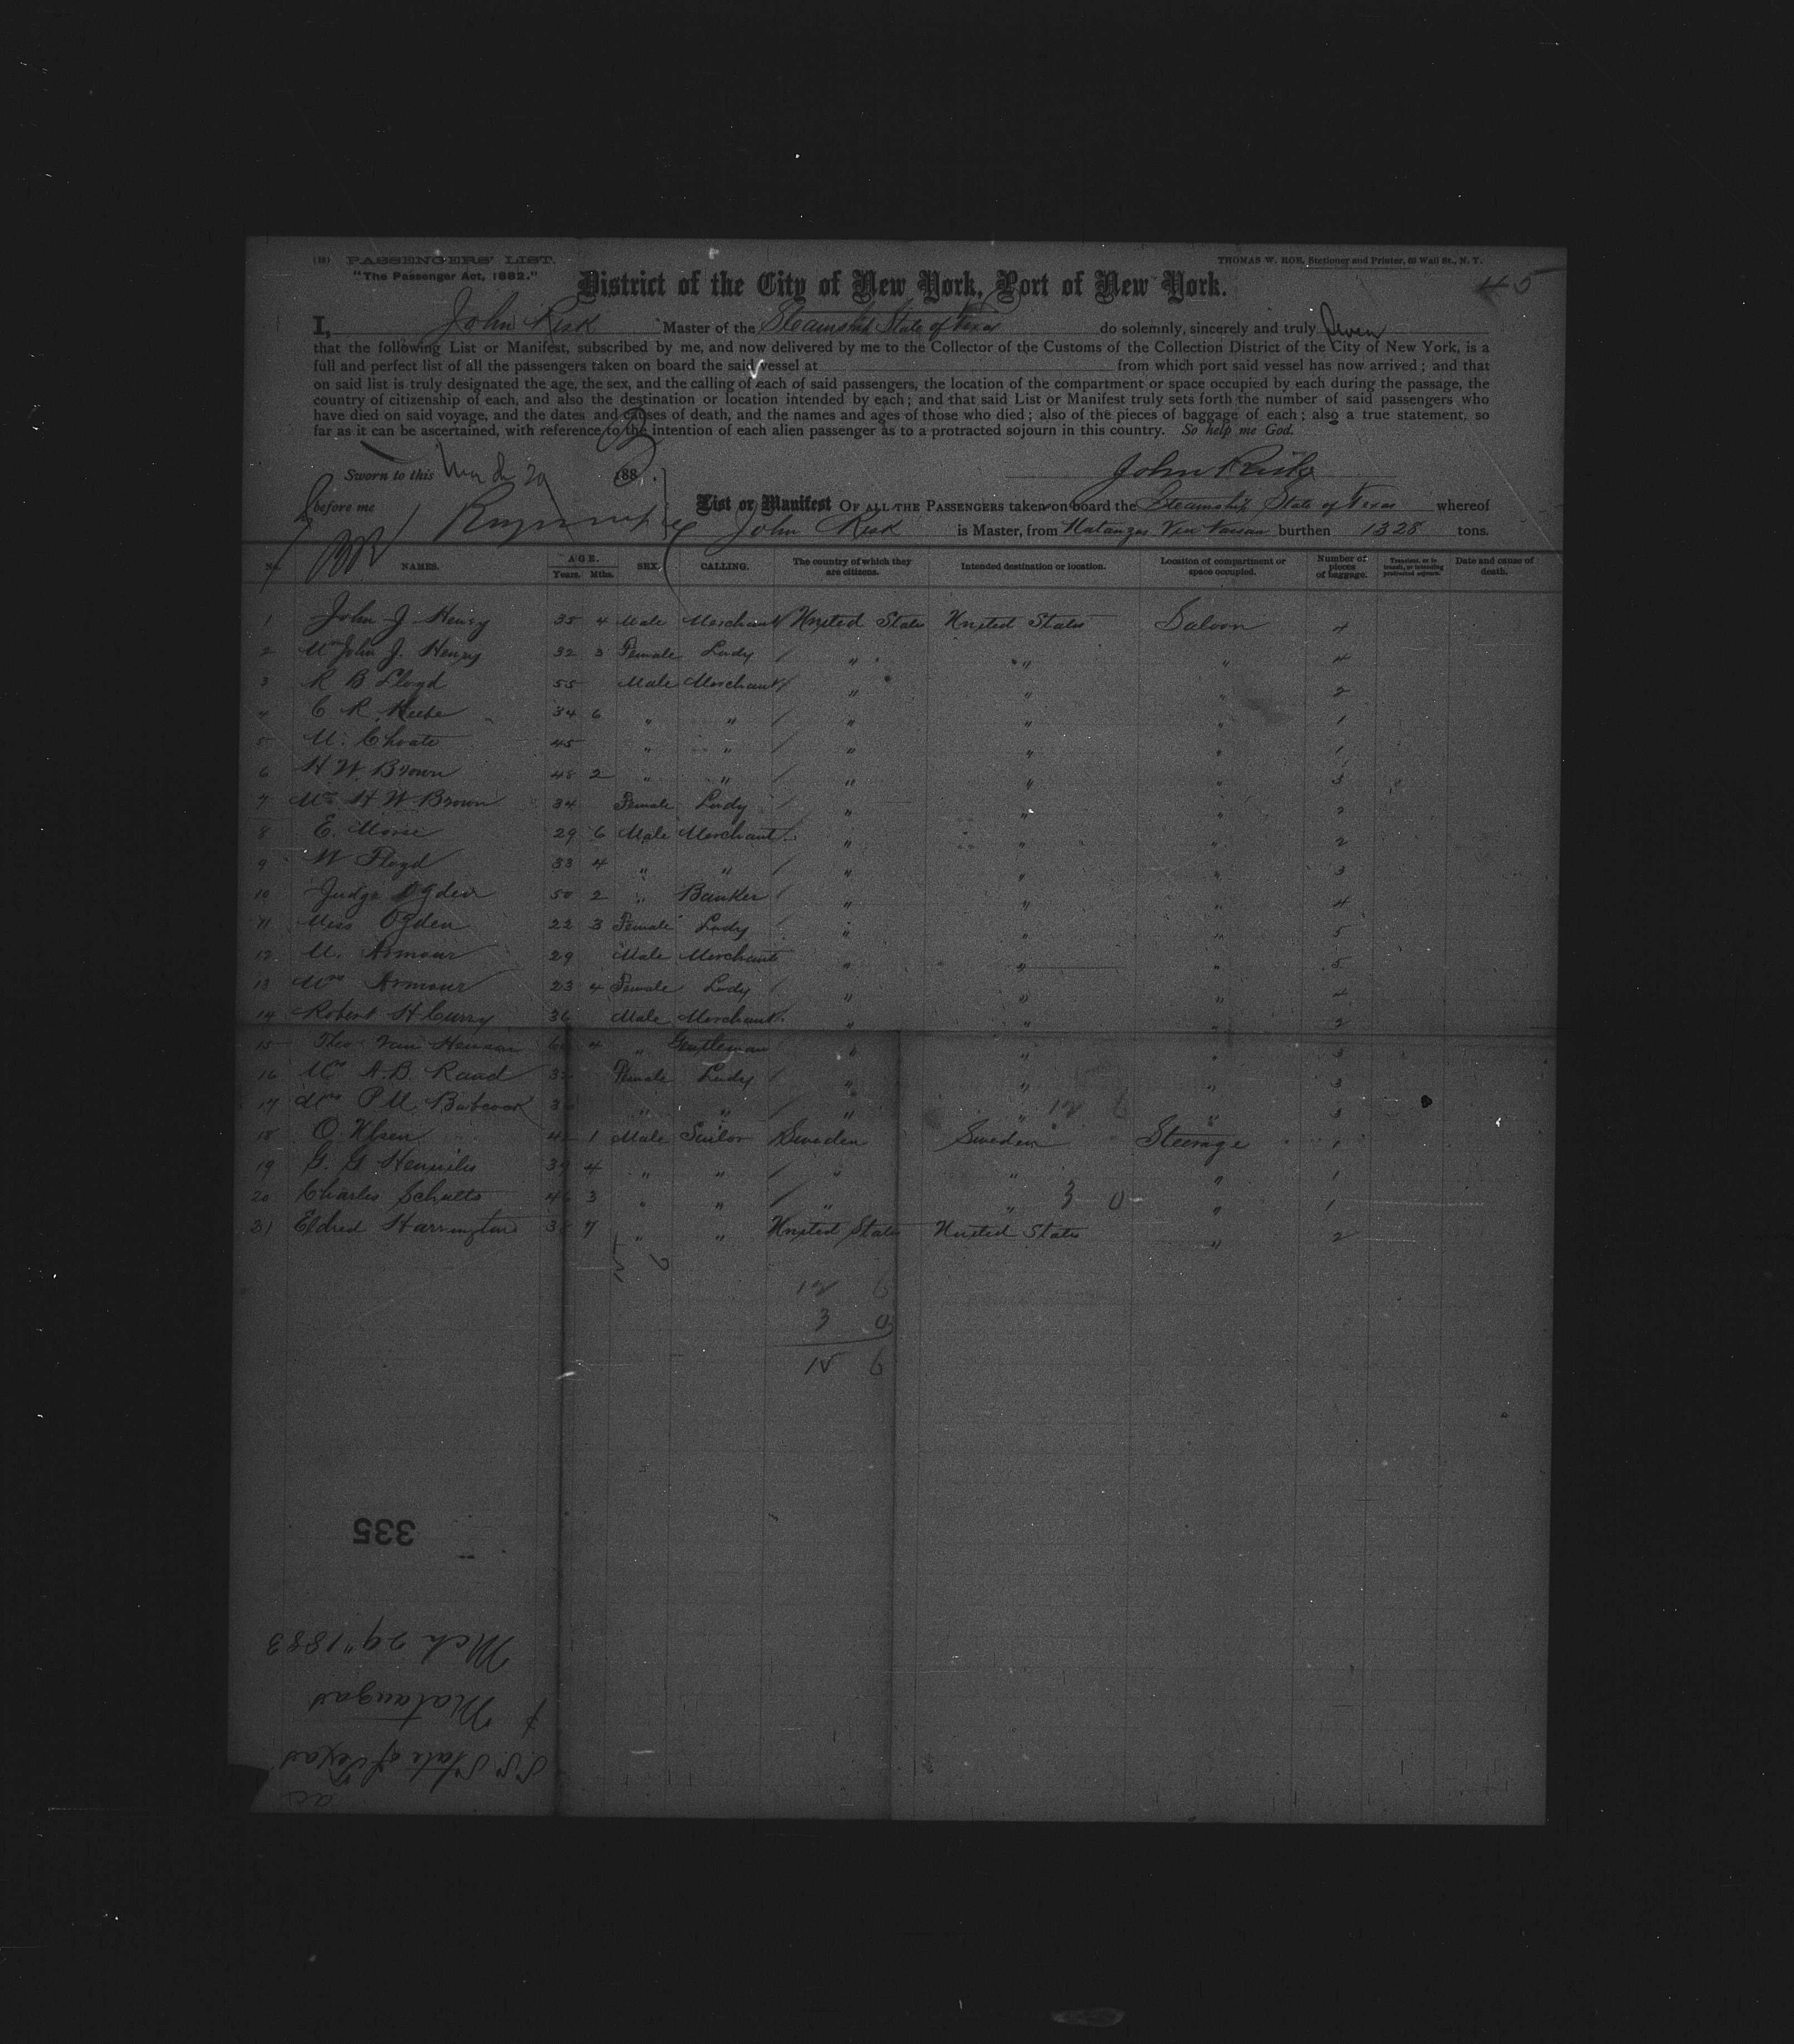 (18) PASSENGERS' LIST.
"The Passenger Act, 1882."
THOMAS W. ROE, Stationer and Printer, 82 Wall St., N. Y.
45
District of the City of New York, Port of New York.
I, John Risk Master of the Steamship State of Texas do solemnly, sincerely and truly swear
that the following List or Manifest, subscribed by me, and now delivered by me to the Collector of the Customs of the Collection District of the City of New York, is a
full and perfect list of all the passengers taken on board the said vessel at from which port said vessel has now arrived; and that
on said list is truly designated the age, the sex, and the calling of each of said passengers, the location of the compartment or space occupied by each during the passage, the
country of citizenship of each, and also the destination or location intended by each; and that said List or Manifest truly sets forth the number of said passengers who
have died on said voyage, and the dates and causes of death, and the names and ages of those who died; also of the pieces of baggage of each; also a true statement, so
far as it can be ascertained, with reference to the intention of each alien passenger as to a protracted sojourn in this country. So help me God.
Sworn to this March 29 1883. John Risk
before me
List or Manifest OF ALL THE PASSENGERS taken on board the Steamship State of Texas whereof
John Risk is Master, from Matanzas Via Nassau burthen 1328 tons.
No. NAMES. AGE. Years. Mths. SEX. CALLING. The country of which they are citizens. Intended destination or location. Location of compartment or space occupied. Number of pieces of baggage. Transient, or in transit, or intending protracted sojourn. Date and cause of death.
1 John J. Henry 35 4 Male Merchant United States United States Saloon 4
2 Mrs John J. Henry 32 3 Female Lady / " " " 4
3 R B Lloyd 55 Male Merchant / " " " 2
4 C R 34 6 " " / " " " 1
5 M. Choate 45 " " / " " " 1
6 H. W. Brown 48 2 " " / " " " 3
7 Mrs H W Brown 34 Female Lady / " " " 2
8 E. Morse 29 6 Male Merchant / " " " 2
9 W Floyd 33 4 " " / " " " 3
10 Judge Ogden 50 2 " Banker / " " " 4
11 Miss Ogden 22 3 Female Lady / " " " 5
12 M. Armour 29 Male Merchant " " " 5
13 Mrs Armour 23 4 Female Lady / " " "
14 Robert H Curry 36 Male Merchant " " " 2
15 Theo Van 4 " Gentleman / " " " 3
16 Mrs A. B. Raand Female Lady / " " " 3
17 Mrs P M. Babcock " " / " " " 3
12 6
18 O. Olsen 1 Male Sailor Sweden Sweden Steerage 1
19 G. G 39 4 " " / " " " 1
20 Charles Schults 46 3 " " / " " " 1
3 0
21 Eldred Harrington 38 7 " " United States United States " 2
12 6
3 0
15 6
335
Mch 29" 1883
f Matanzas
S.S. State of Texas